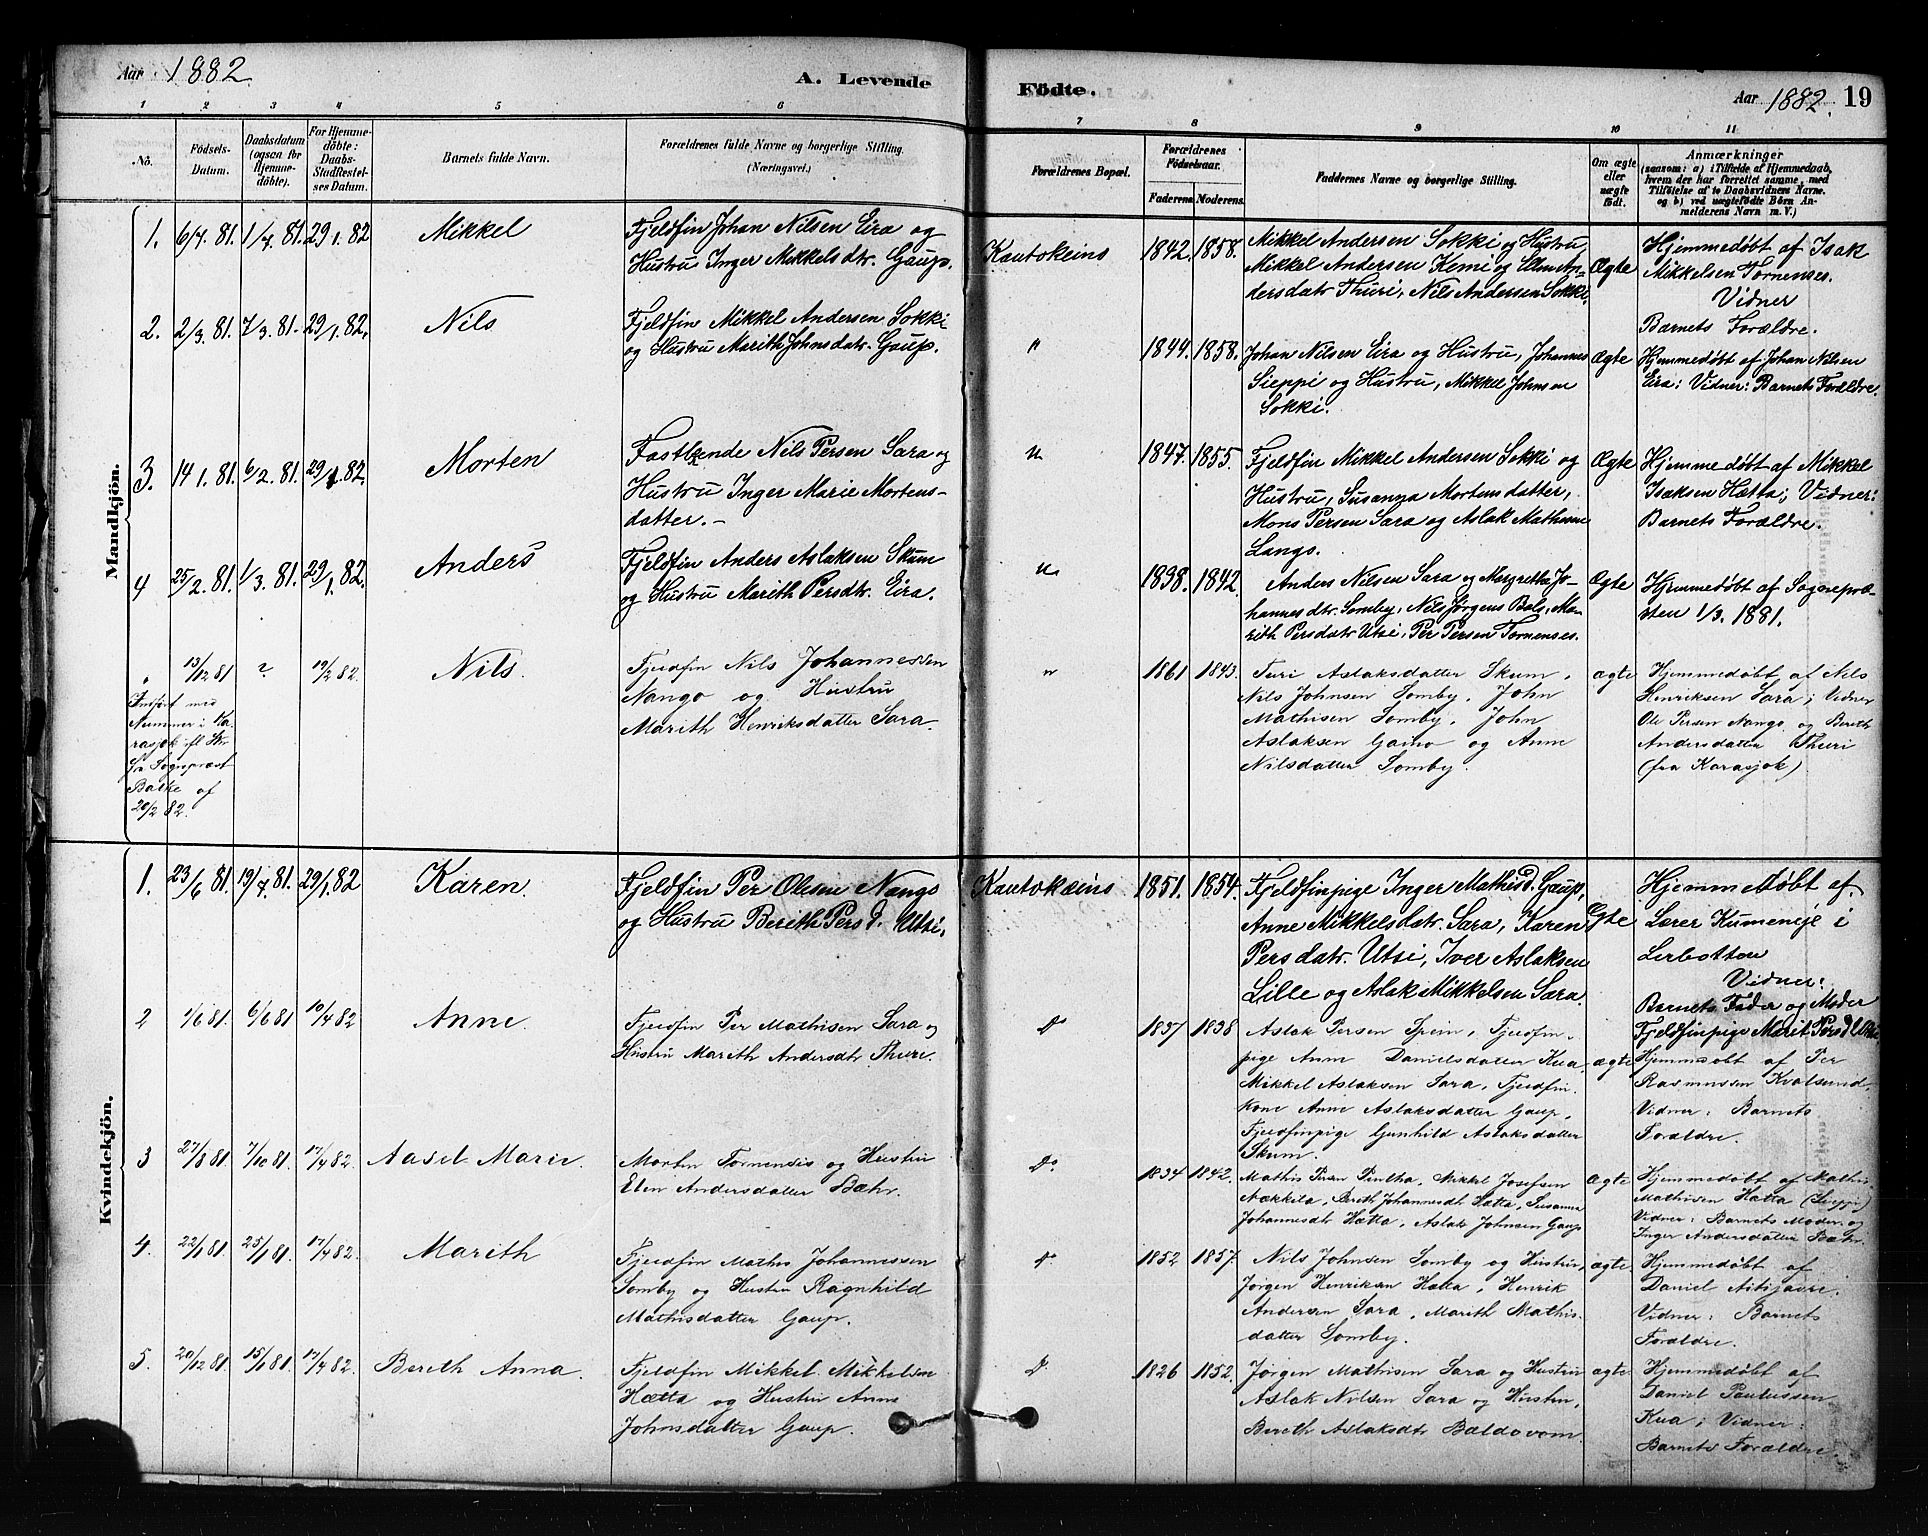 Aar 1882
A. Levende
Födte.
Aar 1882. 19
1 2 3 4 5 6 7 8 9 10 11
No.
Födsels-Datum.
Daabsdatum (ogsaa for Hjemme-döbte).
For Hjemme-döbte: Daabs-Stadfæstel-ses Datum.
Barnets fulde Navn.
Forældrenes fulde Navne og borgerlige Stilling. (Næringsvei.)
Forældrenes Bopæl.
Forældrenes Födselsaar.
Faderens Moderens.
Faddernes Navne og borgerlige Stilling.
Om ægte eller uægte födt.
Anmærkninger
(saasom: a) i Tilfælde af Hjemmedaab,
hvem der har forrettet samme, med
Tilföielse af to Daabsvidners Navne.
og b) ved uægtefödte Börn An-
melderens Navn m. V.)
Mandkjön.
1. 6/7 81. 1/7 81. 29/1 82 Mikkel
Fjeldfin Johan Nilsen Eira og
Hustru Inger Mikkelsdtr. Gaup.
Kautokeino 1842. 1858.
Mikkel Andersen Sokki og Hustru,
Mikkel Andersen Kemi og Ellen An-
dersdatr Thuri, Nils Andersen Sokki.
Ægte
Hjemmedøbt af Isak
Mikkelsen Tornenses.
Vidner
Barnets Forældre.
2. 2/3 81. 7/3 81. 29/1 82. Nils
Fjeldfin Mikkel Andersen Sokki
og Hustru Marith Johnsdatr. Gaup.
" 1844. 1858.
Johan Nilsen Eira og Hustru, Johannes
Sieppi og Hustru, Mikkel Johnsen
Sokki.
Ægte
Hjemmedøbt af Johan Nilsen
Eira; Vidner: Barnets Forældre.
3. 14/1 81. 6/2 81. 29/1 82. Morten
Fastboende Nils Persen Sara og
Hustru Inger Marie Mortens-
datter.-
" 1847. 1855.
Fjeldfin Mikkel Andersen Sokki og
Hustru, Susanna Mortensdatter,
Mons Persen Sara og Aslak Mathisen
Lango.
Ægte
Hjemmedøbt af Mikkel
Isaksen Hætta; Vidner:
Barnets Forældre.
4 25/2 81. 1/3 81. 29/1 82. Anders
Fjeldfin Anders Aslaksen Skum
og Hustru Marith Persdtr. Eira.
" 1838. 1842.
Anders Nilsen Sara og Margretha Jo-
hannesdtr. Somby, Nils Jørgens Bals, Ma-
rith Persdatr Utsi, Per Persen Tornenses.
Ægte
Hjemmedøbt af Sognepræ-
sten 1/3. 1881.
13/12 81 ? 19/2 82. Nils.
Indført med
Nummer i Ka
rasjok fl Skr
fra Sognepræst
Balke af
20/2 82.
Fjeldfin Nils Johannessen
Nango og Hustru
Marith Henriksdatter Sara.
" 1861 1843.
Turi Aslaksdatter Skum,
Nils Johnsen Somby, John
Mathisen Somby, John
Aslaksen Gaino og Anne
Nilsdatter Somby.
ægte
Hjemmedøbt af Nils
Henriksen Sara; Vidner
Ole Persen Nango og Bereth
Andersdatter Thuri
(fra Karasjok)
Kvindekjön.
1. 23/6 81. 19/7 81. 29/1 82 Karen
Fjeldfin Per Olsen Nango
og Hustru Berith Pers d. Utsi.
Kautokeino 1851. 1854.
Fjeldfinpige Inger Mathisd. Gaup,
Anne Mikkelsdatr. Sara, Karen
Persdatr. Utsi, Iver Aslaksen
Lille og Aslak Mikkelsen Sara.
Ægte
Hjemmedøbt af
Lærer Kumeneje i
Lerbotten
Vidner:
Barnets Fader og Moder
Fjeldfinpige Marit Pers d Utsi
2 1/6 81. 6/6 81 10/4 82 Anne.
Fjeldfin Per Mathisen Sara og
Hustru Marith Andersdtr Thuri.
Do 1837 1838
Aslak Persen Spein, Fjeldfin-
pige Anne Danielsdatter Kua,
Mikkel Aslaksen Sara, Fjeldfin
kone Anne Aslaksdatter Gaup,
Fjeldfinpige Gunhild Aslaksdatter
Skum.
ægte
Hjemmedøbt af Per
Rasmussen Kvalsund.
Vidner: Barnets
Forældre.
3 27/8 81. 7/10 81. 17/4 82. Aasel Marie.
Morten Tornensis og Hustru
Elen Andersdatter Bæhr.
Do 1834 1842.
Mathis Persen Pintha, Mikkel Josefsen
Nækkila, Berith Johannesdt Hætta, Susanna
Johannesdtr Hætta, Aslak Johnsen Gaup
ægte
Hjemmedøbt af Mathis
Mathisen Hætta (Sieppi)
Vidner: Barnets Moder og
Inger Andersdatter Bæhr.
4. 22/1 81. 25/1 81. 17/4 82. Marith
Fjeldfin Mathis Johannessen
Somby og Hustru Ragnhild
Mathisdatter Gaup.
Do 1852 1857.
Nils Johnsen Somby og Hustru,
Jørgen Henriksen Hætta, Henrik
Andersen Sara, Marith Mathis-
datter Somby.
ægte
Hjemmedøbt af
Daniel Aitijavre.
Vidner: Barnets
Forældre.
5. 20/12 81. 15/1 81. 17/4 82. Bereth Anna.
Fjeldfin Mikkel Mikkelsen
Hætta og Hustru Anne
Johnsdatter Gaup.
Do 1826 1852.
Jørgen Mathisen Sara og Hustru
Aslak Nilsen Sara og Hustru,
Bereth Aslaksdtr Baldovom.
ægte
Hjemmedøbt af
Daniel Paulussen
Kua; Vidner:
Barnets Forældre.